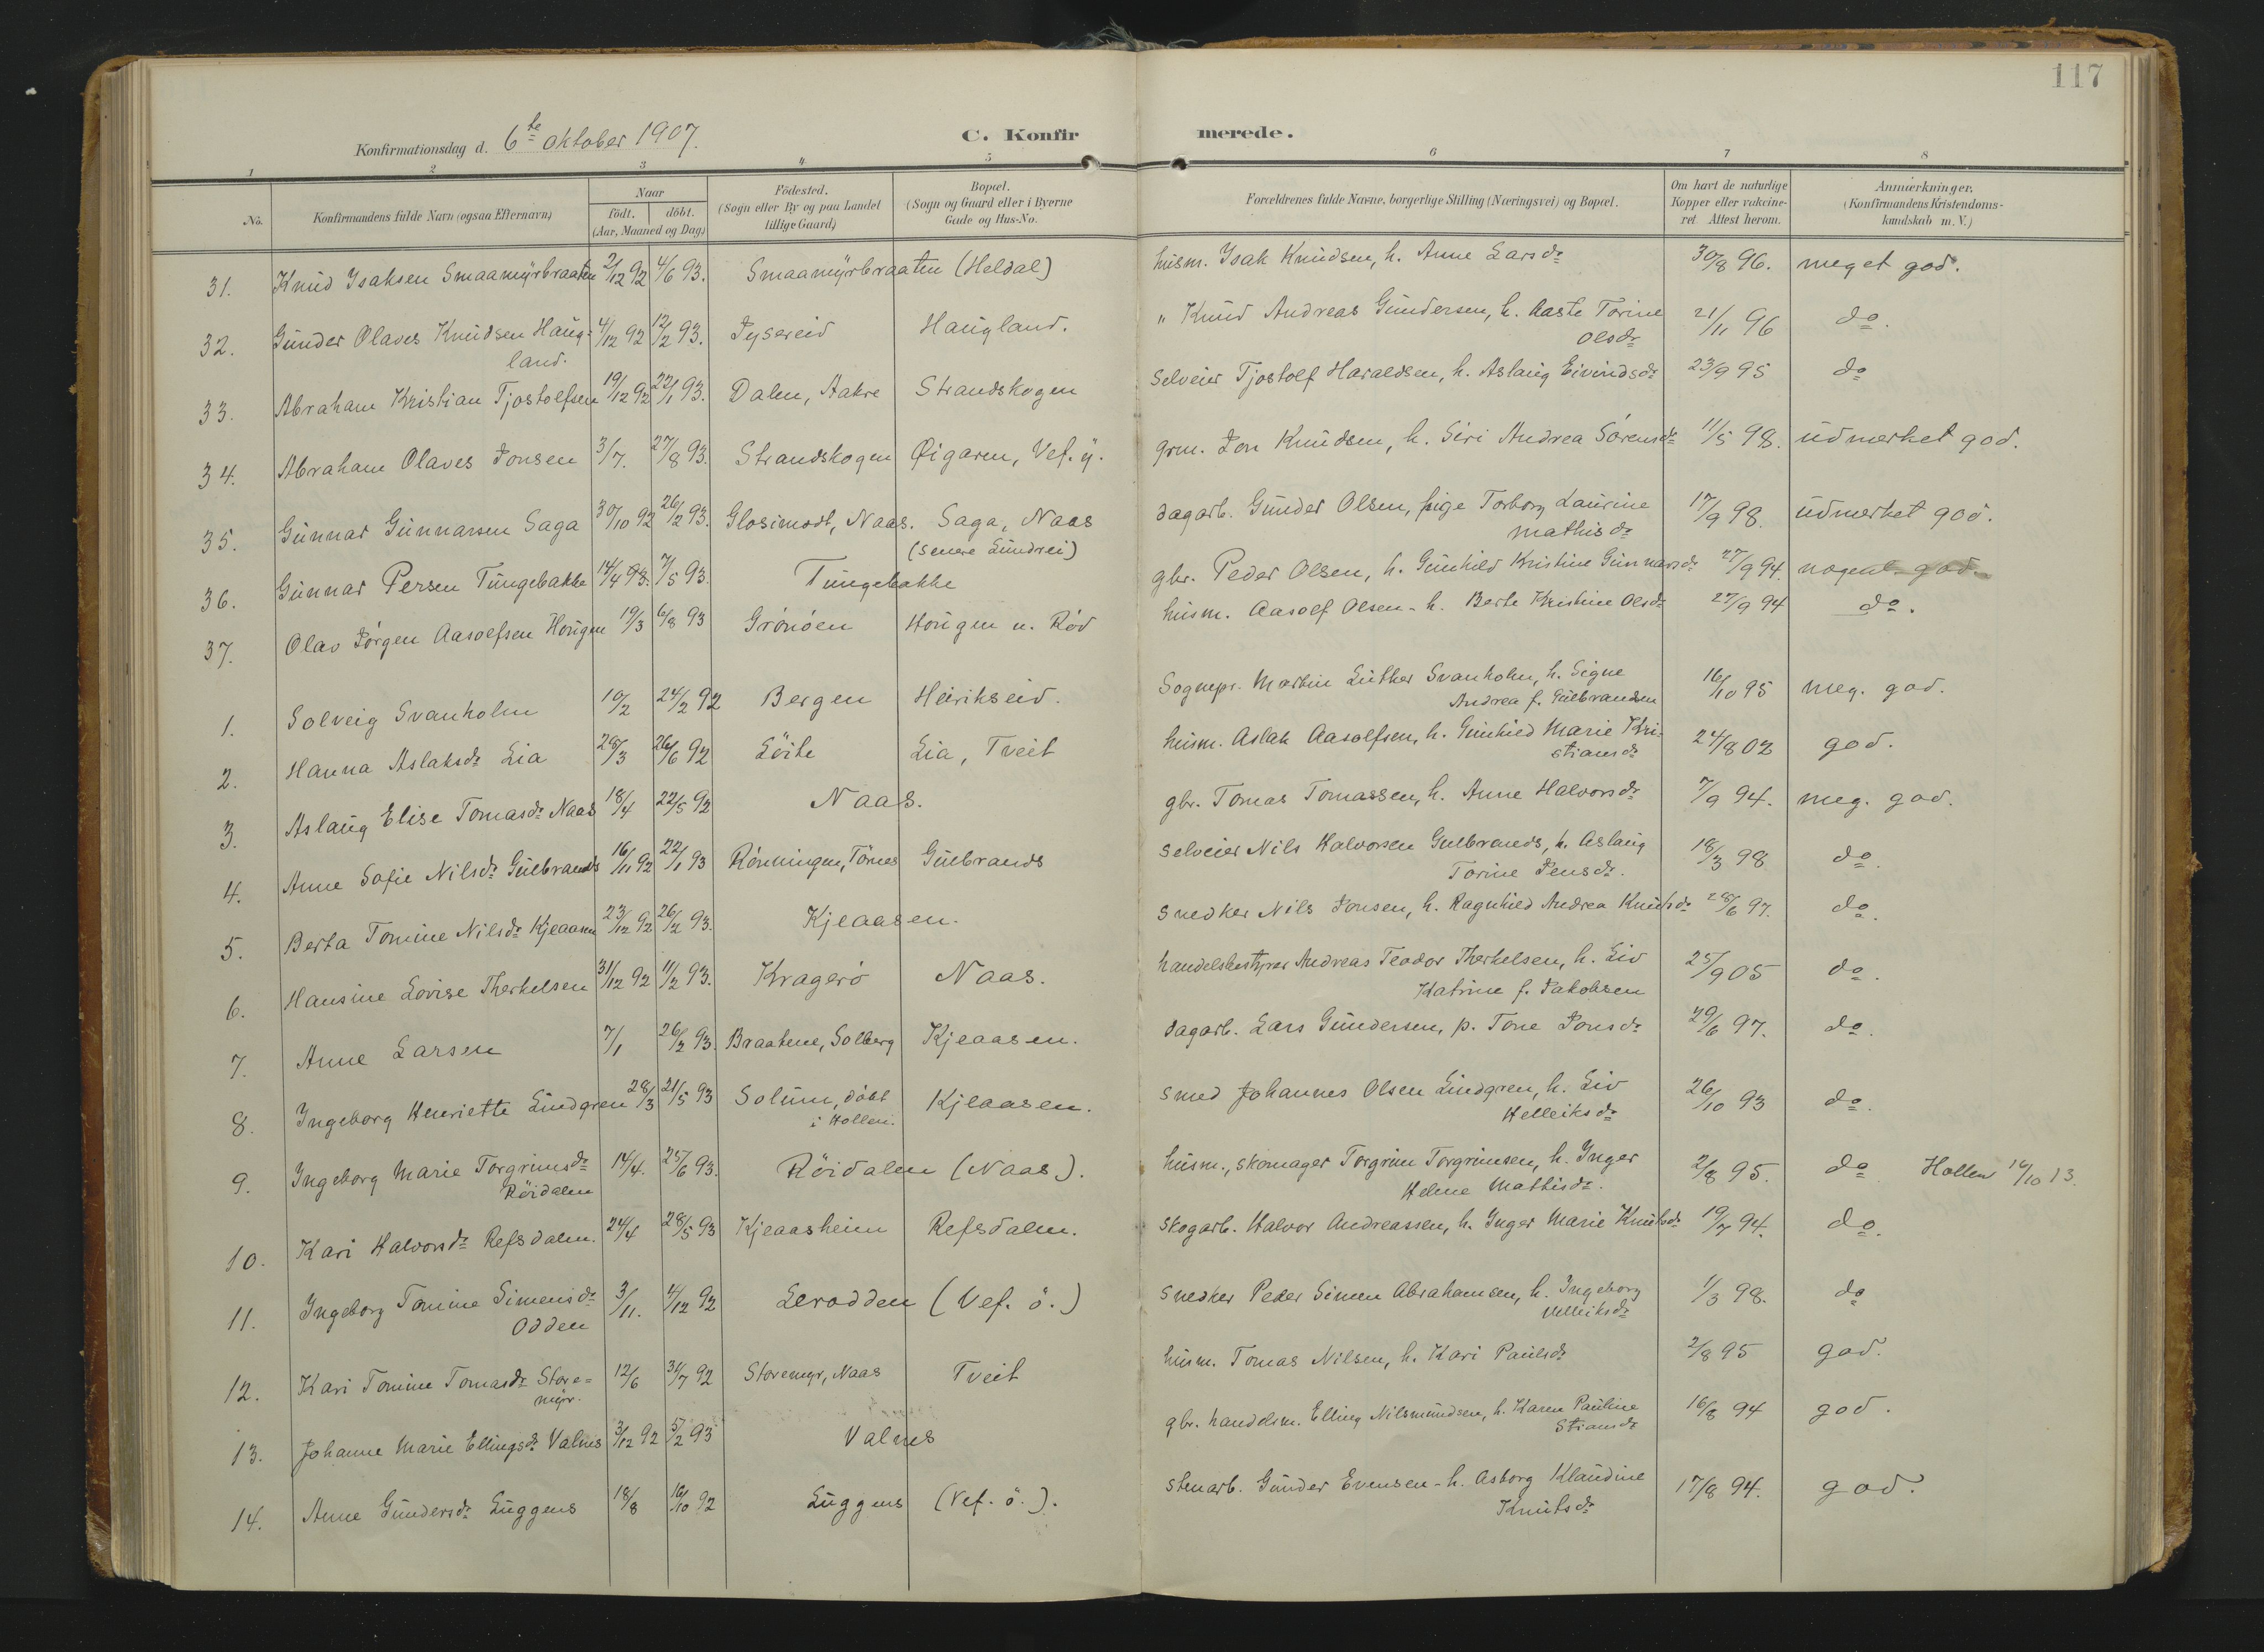 117
Konfirmationsdag d. 6te oktober 1907.
C. Konfir merede.
1 2 3 4 5 6 7 8
No. Konfirmandens fulde Navn (ogsaa Efternavn) Naar födt. döbt. (Aar, Maaned og Dag) Födested. (Sogn eller By og paa Landet tillige Gaard) Bopæl. (Sogn og Gaard eller i Byerne Gade og Hus-No. Forældrenes fulde Navne, borgerlige Stilling (Næringsvei) og Bopæl. Om havt de naturlige Kopper eller vakcineret Attest herom. Anmærkninger. (Konfirmandens Kristendomskundskab m. V.)
31. Knud Isaksen Smaamyrbraaten 2/12 92 4/6 93. Smaamyrbraaten (Heldal) husm. Isak Knudsen, h. Anne Larsdr 30/8 96. meget god.
32. Gunder Olaves Knudsen Haug= 4/12 92 12/2 93. Haugland. " Knud Andreas Gundersen, h. Aaste Torine 21/11 96 do.
land. Olsdr
33. Abraham Kristian Tjostolfsen 19/12 92 22/1 93. Dalen, Aakre Strandskogen Selveier Tjostolf Haraldsen, h. Aslaug Eivindsdr 23/9 95 do
34. Abraham Olaves Jonsen 3/7. 27/8 93. Strandskogen Øigaren, Vef. y. grm. Jon Knudsen, h. Siri Andrea Sørensdr 11/5 98. udmerket god.
35. Gunnar Gunnarsen Saga 30/10 92 26/2 93. Glosimodt, Naas. Saga, Naas dagarb. Gunder Olsen, pige Torborg Laurine 17/9 98. udmerket god.
(senere Lundrei) mathisdr
36. Gunnar Persen Tungebakke 14/4 93. 7/5 93. Tungebakke gbr. Peder Olsen, h. Gunhild Kristine Gunnarsdr 27/9 94. nogenl. god.
37. Olav Jørgen Aasolfsen Hougen 19/3 6/8 93 Grønøen Hougen u. Rød husm. Aasolf Olsen - h. Berte Kristine Olsdr 27/9 94 do.
1. Solveig Svanholm 10/2 24/2 92 Bergen Heirikseid. Sognepr. Martin Luther Svanholm, h. Signe 16/10 95 meg. god.
Andrea f. Gulbrandsen
2. Hanna Aslaksdr Lia 28/3 26/6 92 Löite Lia, Tveit husm. Aslak Aasolfsen, h. Gunhild Marie Kri- 24/8 02 god.
stiansdr
3. Aslaug Elise Tomasdr Naas 18/4 22/5 92 Naas. gbr. Tomas Tomassen, h. Anne Halvorsdr 7/9 94. meg. god.
4. Anne Sofie Nilsdr Gulbrands 16/11 92 22/1 93 Rønningen, Tørnes Gulbrands Selveier Nils Halvorsen Gulbrands, h. Aslaug 18/3 98 do.
Torine Jensdr.
5. Berta Tomine Nilsdr Kjeaasen 23/12 92 26/2 93. Kjeaasen. Snedker Nils Jonsen, h. Ragnhild Andrea Knutsdr 28/6 97. do.
6. Hansine Lovise Therkelsen 31/12 92 11/2 93. Kragerø Naas. handelsbestyrer Andreas Teodor Therkelsen, h. Liv 25/9 05 do.
Katrine f. Jakobsen
7. Anne Larsen 7/1 26/2 93. Braatene, Solberg Kjeaasen. dagarb. Lars Gundersen, p. Tone Jonsdr 29/6 97. do.
8. Ingeborg Henriette Lindgren 28/3 21/5 93 Solum, döbt Kjeaasen. Smed Johannes Olsen Lindgren, h. Liv 26/10 93 do.
i Hollen. Helleiksdr
9. Ingeborg Marie Torgrimsdr 14/4. 25/6 93. Röidalen (Naas). husm., skomager Torgrim Torgrimsen, h. Inger 2/8 95. do Hollen 16/10 13.
Röidalen Helene Mathisdr.
10. Kari Halvorsdr Refsdalen. 24/4 28/5 93 Kjeaasheim Refsdalen. skogarb. Halvor Andreassen, h. Inger Marie Knutsdr 19/7 94. do.
11. Ingeborg Tomine Simensdr 3/11. 4/12 92 Lerodden (Vef. ö.) Snedker Peder Simen Abrahamsen, h. Ingeborg 1/3 98. do
Odden Helleiksdr
12. Kari Tomine Tomasdr Store= 12/6 31/7 92 Storemyr, Naas Tveit husm. Tomas Nilsen, h. Kari Paulsdr 2/8 95 god.
myr.
13. Johanne Marie Ellingsdr Valnes 3/12 92 5/2 93 Valnes gbr. handelsm. Elling Nilsmundsen, h. Karen Pauline 16/8 94 god.
Stiansdr
14. Anne Gundersdr Luggens 18/8 16/10 92 Luggens (Vef. ö.). stenarb. Gunder Evensen - h. Asborg Klaudine 17/8 94. god.
Knutsdr